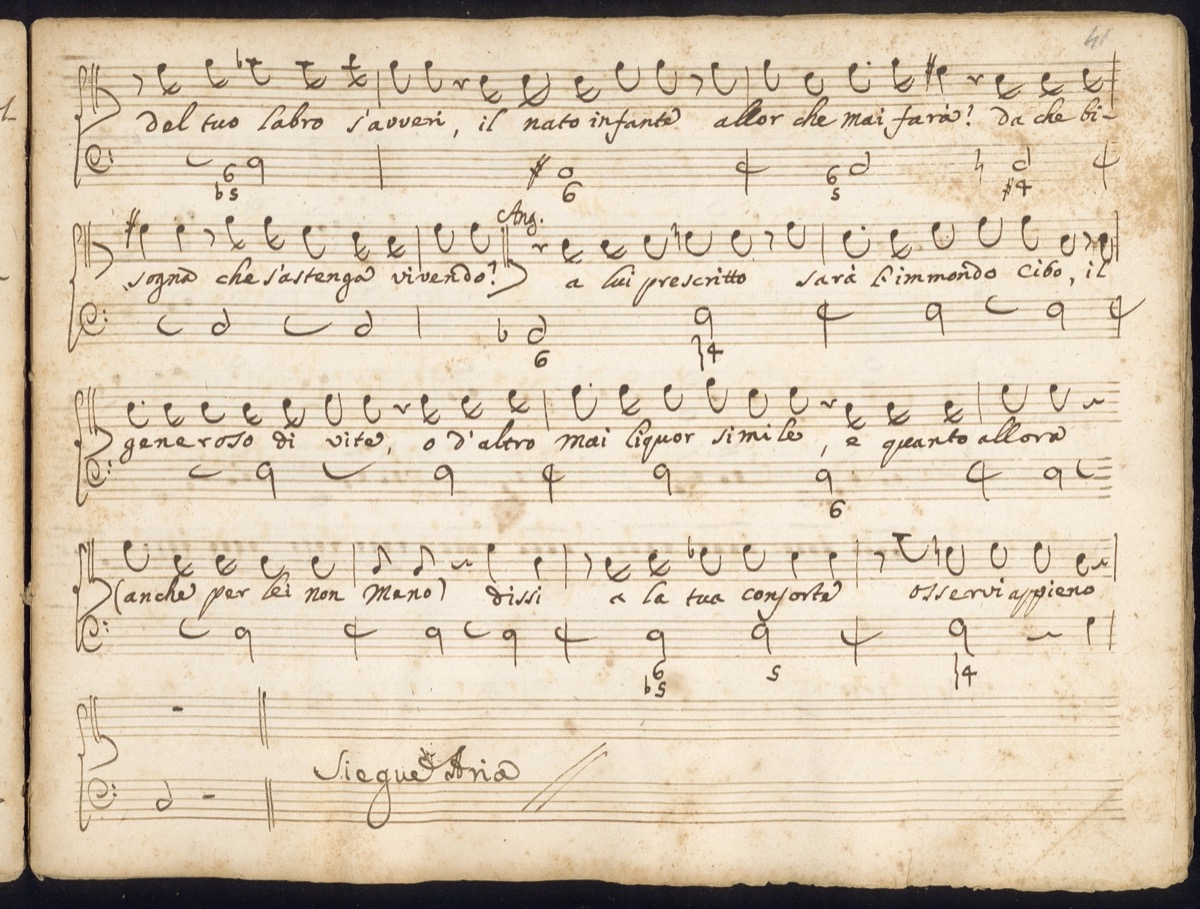 41
del tuo labro s'averi, il nato infante allor che mai farà? da che bi-
6 6 6 4
b5 5
Ang.
sogna che s'astenga vivendo? a lui prescritto sarà l'immondo cibo, il
6 4
generoso di vite, o d'altro mai liquor simile, e quanto allora
6
(anche per lei non meno) dissi a la tua consorte osservi appieno
6 5 4
b5
Siegue Aria